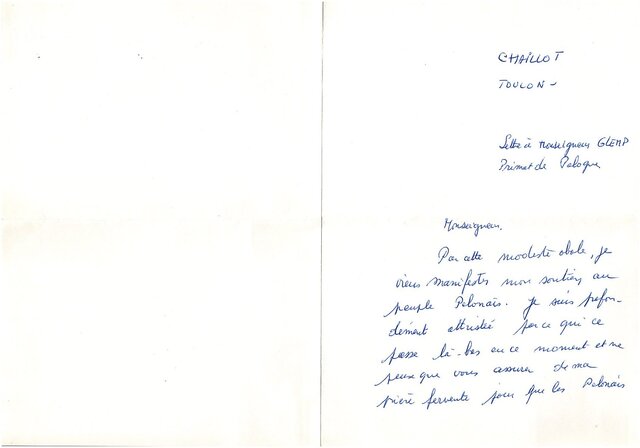 CHAILLOT
TOULON -
Lettre à Monseigneur GLEMP
Primat de Pologne
Monseigneur.
Par cette modeste obole, je
viens manifester mon soutien au
peuple Polonais. Je suis profon-
dément attristée par ce qui ce
passe là-bas en ce moment et ne
peux que vous assurer de ma
prière fervente pour que les Polonais